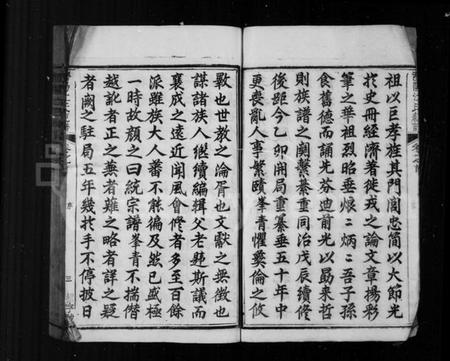 祖以巨孝旌其門閭忠簡以大節光
於史冊經濟著徙戎之論文章揚彩
筆之華祖烈昭垂烺烺炳炳吾子孫
食舊德而誦光芬迪前光以勗來哲
則族譜之關繫綦重同治戊辰續修
後距今乙卯開局重纂垂五十年中
更喪亂人事繁賾峯青懼彝倫之攸
斁也世教之淪胥也文獻之無徵也
謀諸族人繼續編輯父老韙斯議而
襄成之遠近聞風會修者多至百餘
派雖族大人蕃不能徧及然已盛極
一時故顏之曰統宗譜峯青不揣僭
越訛者正之蕪者雜之略者詳之疑
者闕之駐局五年幾於手不停披日
序
三